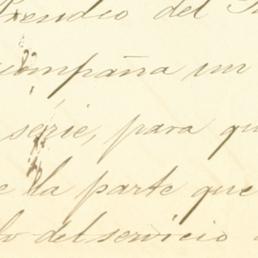 Presidio del
compaña un
serie, para qu
e la parte que
lo del servicio